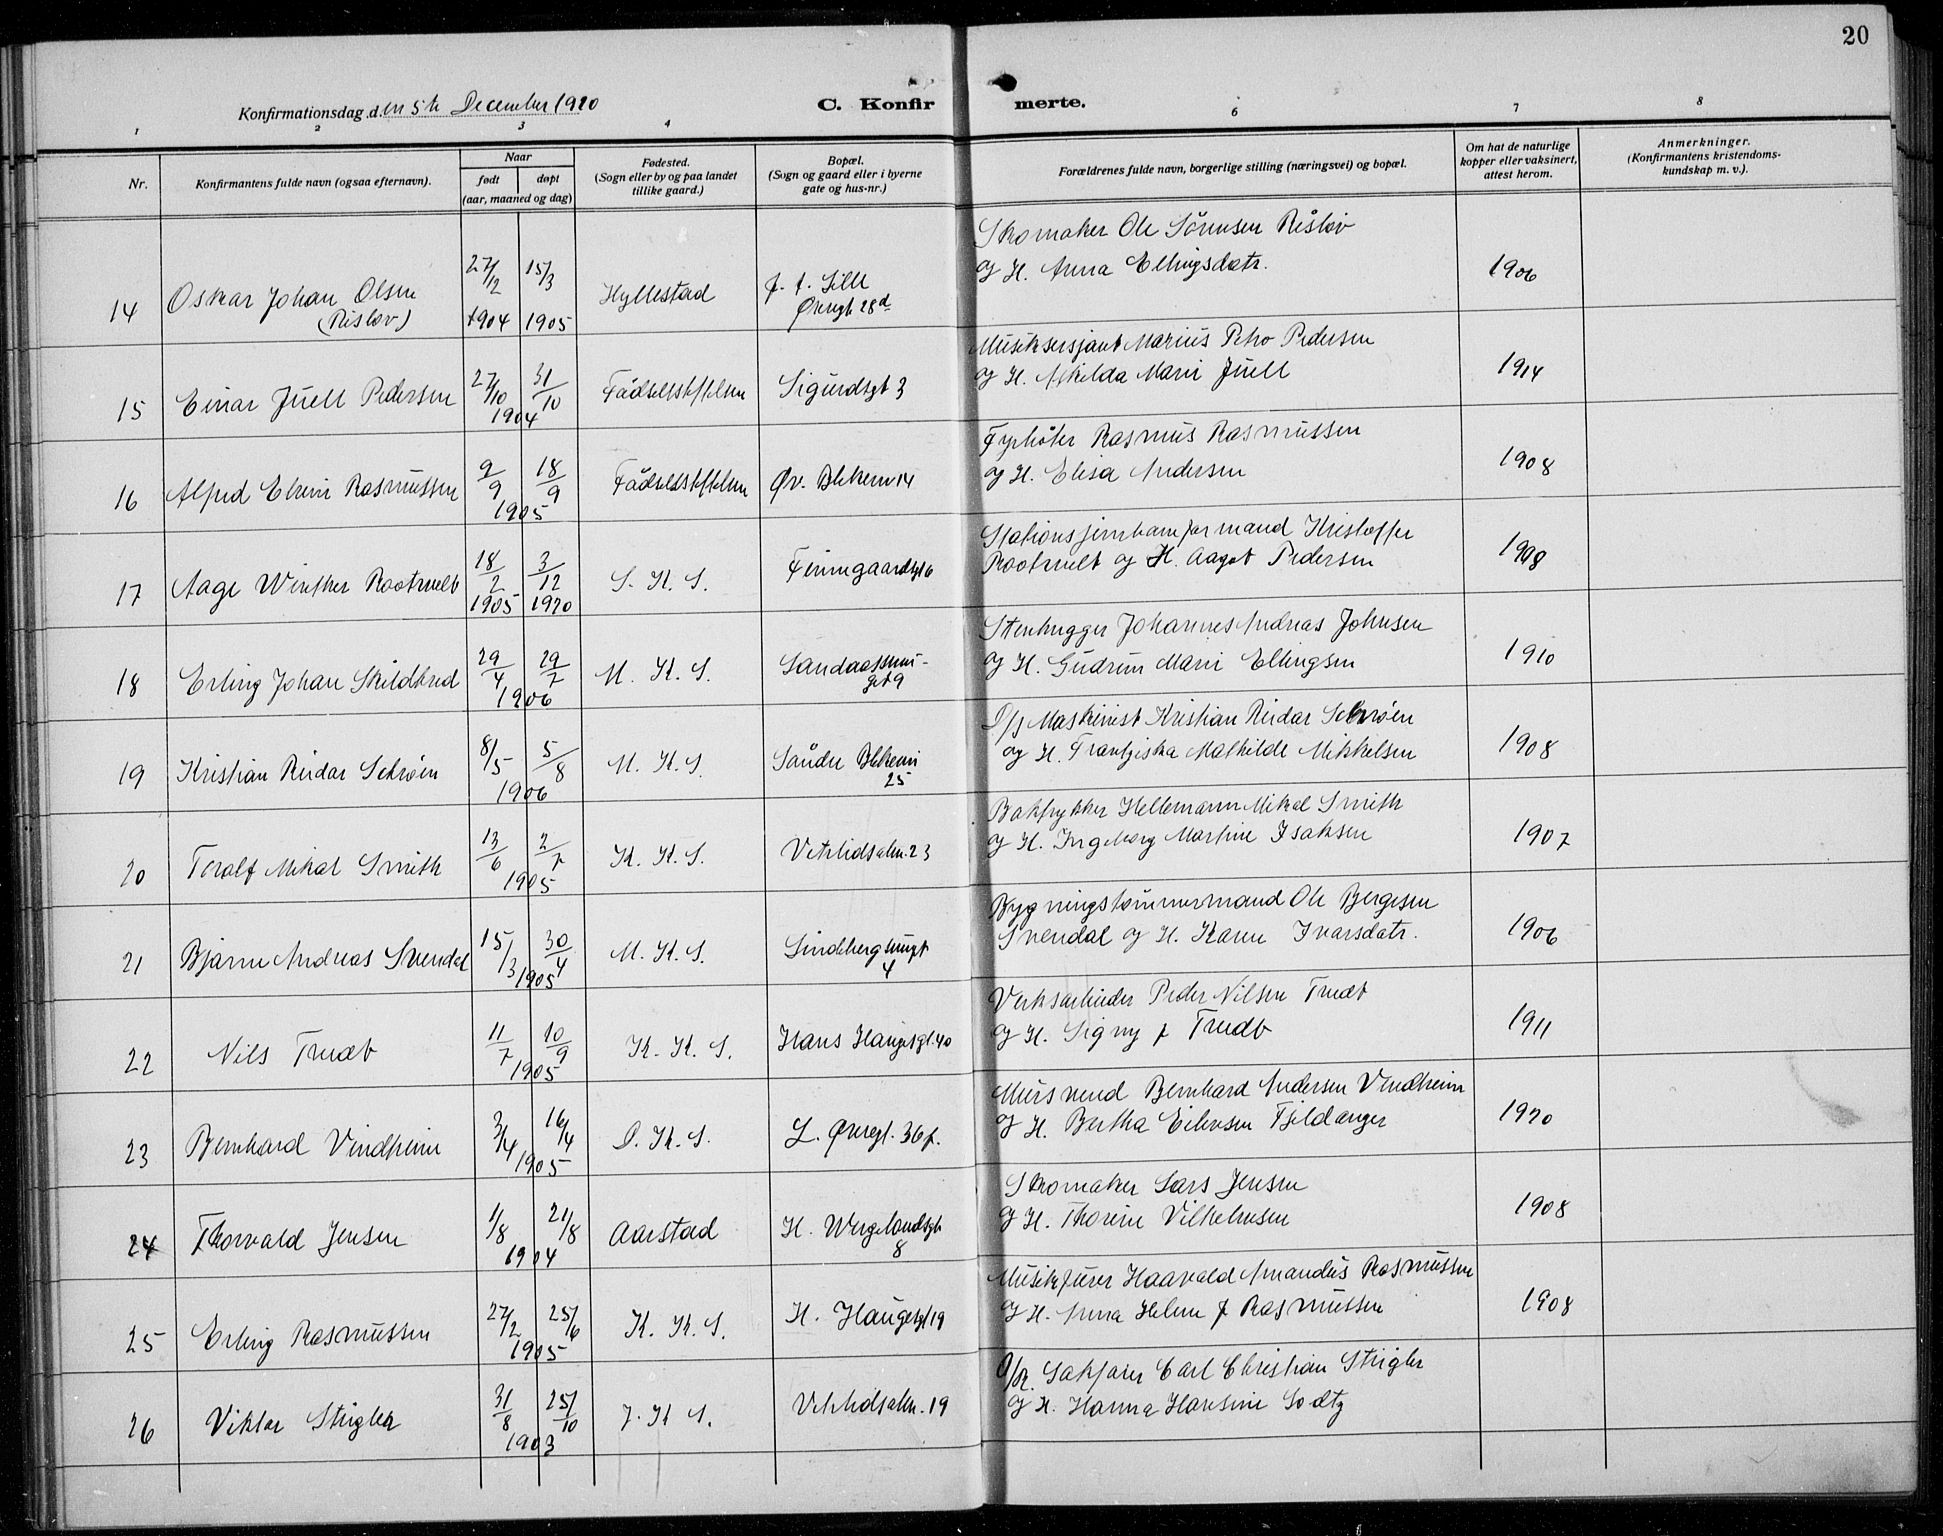 20
Konfirmationsdag den 5te December 1920
C. Konfirmerte.
1 2 3 4 6 7 8
Nr.
Konfirmantens fulde navn (ogsaa efternavn).
Naar
født døpt
(aar, maaned og dag)
Fødested.
(Sogn eller by og paa landet
tillike gaard.)
Bopæl.
(Sogn og gaard eller i byerne
gate og hus-nr.)
Forældrenes fulde navn, borgerlige stilling (næringsvei) og bopæl.
Om hat de naturlige
kopper eller vaksinert,
attest herom.
Anmerkninger.
(Konfirmantens kristendoms-
kundskap m. v.).
14 Oskar Johan Olsen
(Risløv)
27/2 1904 15/3 1905
Hyllestad
Øvregt 28d
Skomaker Ole Sörensen Risløv
og H. Anna Ellingsdatr.
1906
15 Einar Juell Pedersen
27/10 31/10
1904
Födselsstiftelsen
Sigurdsgt 3
Musiksersjant Marius Peho Pedersen
og H. Mkilda Marie Juell
1914
16 Alfred Elvin Rasmussen
9/9 18/9
1905
Födselsstiftelsen
Øv. Blekevei 14
Fyrböter Rasmus Rasmussen
og H. Elisa Andersen
1908
17 Aage Winther Rootwelt
18/2 1905 3/12 1920
S. K. S.
Finnegaardsgt 6
Stationsjernbaneformand Kristoffer
Rootwelt og H. Aagot Pedersen
1908
18 Erling Johan Skildbred
29/4 29/7
1906
M. K. S.
gt 9
Stenhugger Johannes Andreas Johnsen
og H. Gudrun Marie Ellingsen
1910
19 Kristian Reidar Schrøen
8/5 5/8
1906
M. K. S.
Söndre Blekevei
25
D/s Maskinist Kristian Reidar Schrøen
og H. Frantziska Mathilde Mikkelsen
1908
20 Toralf Mikal Smith
13/6 2/7
1905
K. K. S.
Vetrlidsalm. 23
Boktrykker Hellemann Mikal Smith
og H. Ingeborg Martine Isaksen
1907
21 Bjarne Andreas Svendal
15/3 30/4
1905
M. K. S.
4
Bygningstömmermand Ole Bergesen
Svendal og H. Karen Ivarsdatr.
1906
22 Nils Tvedt
11/7 10/9
1905
K. K. S.
Hans Haugesgt. 40
Verksarbeider Peder Nilsen Tvedt
og H. Signy f. Tvedt
1911
23 Bernhard Vindheim
3/4 16/4
1905
D. K. S.
L. Øvregt. 36 f.
Mursvend Bernhard Andersen Vindheim
og H. Bertha Eilevsen Fjeldanger
1920
24 Thorvald Jensen
1/8 21/8
1904
Aarstad
H. Wergelandsgt
8
Skomaker Lars Jensen
og H. Thorine Vilhelmsen
1908
25 Erling Rasmussen
27/2 25/6
1905
K. K. S.
H. Haugesgt 19
Musikfører Haavald Amandus Rasmussen
og H. Anna Helene f. Rasmussen
1908
26 Viktor Stiegler
31/8 25/10
1903
J. K. S.
Vetrlidsalm. 19
Sakfører Carl Christian Stiegler
og H. Hanna Hansine Lodtz